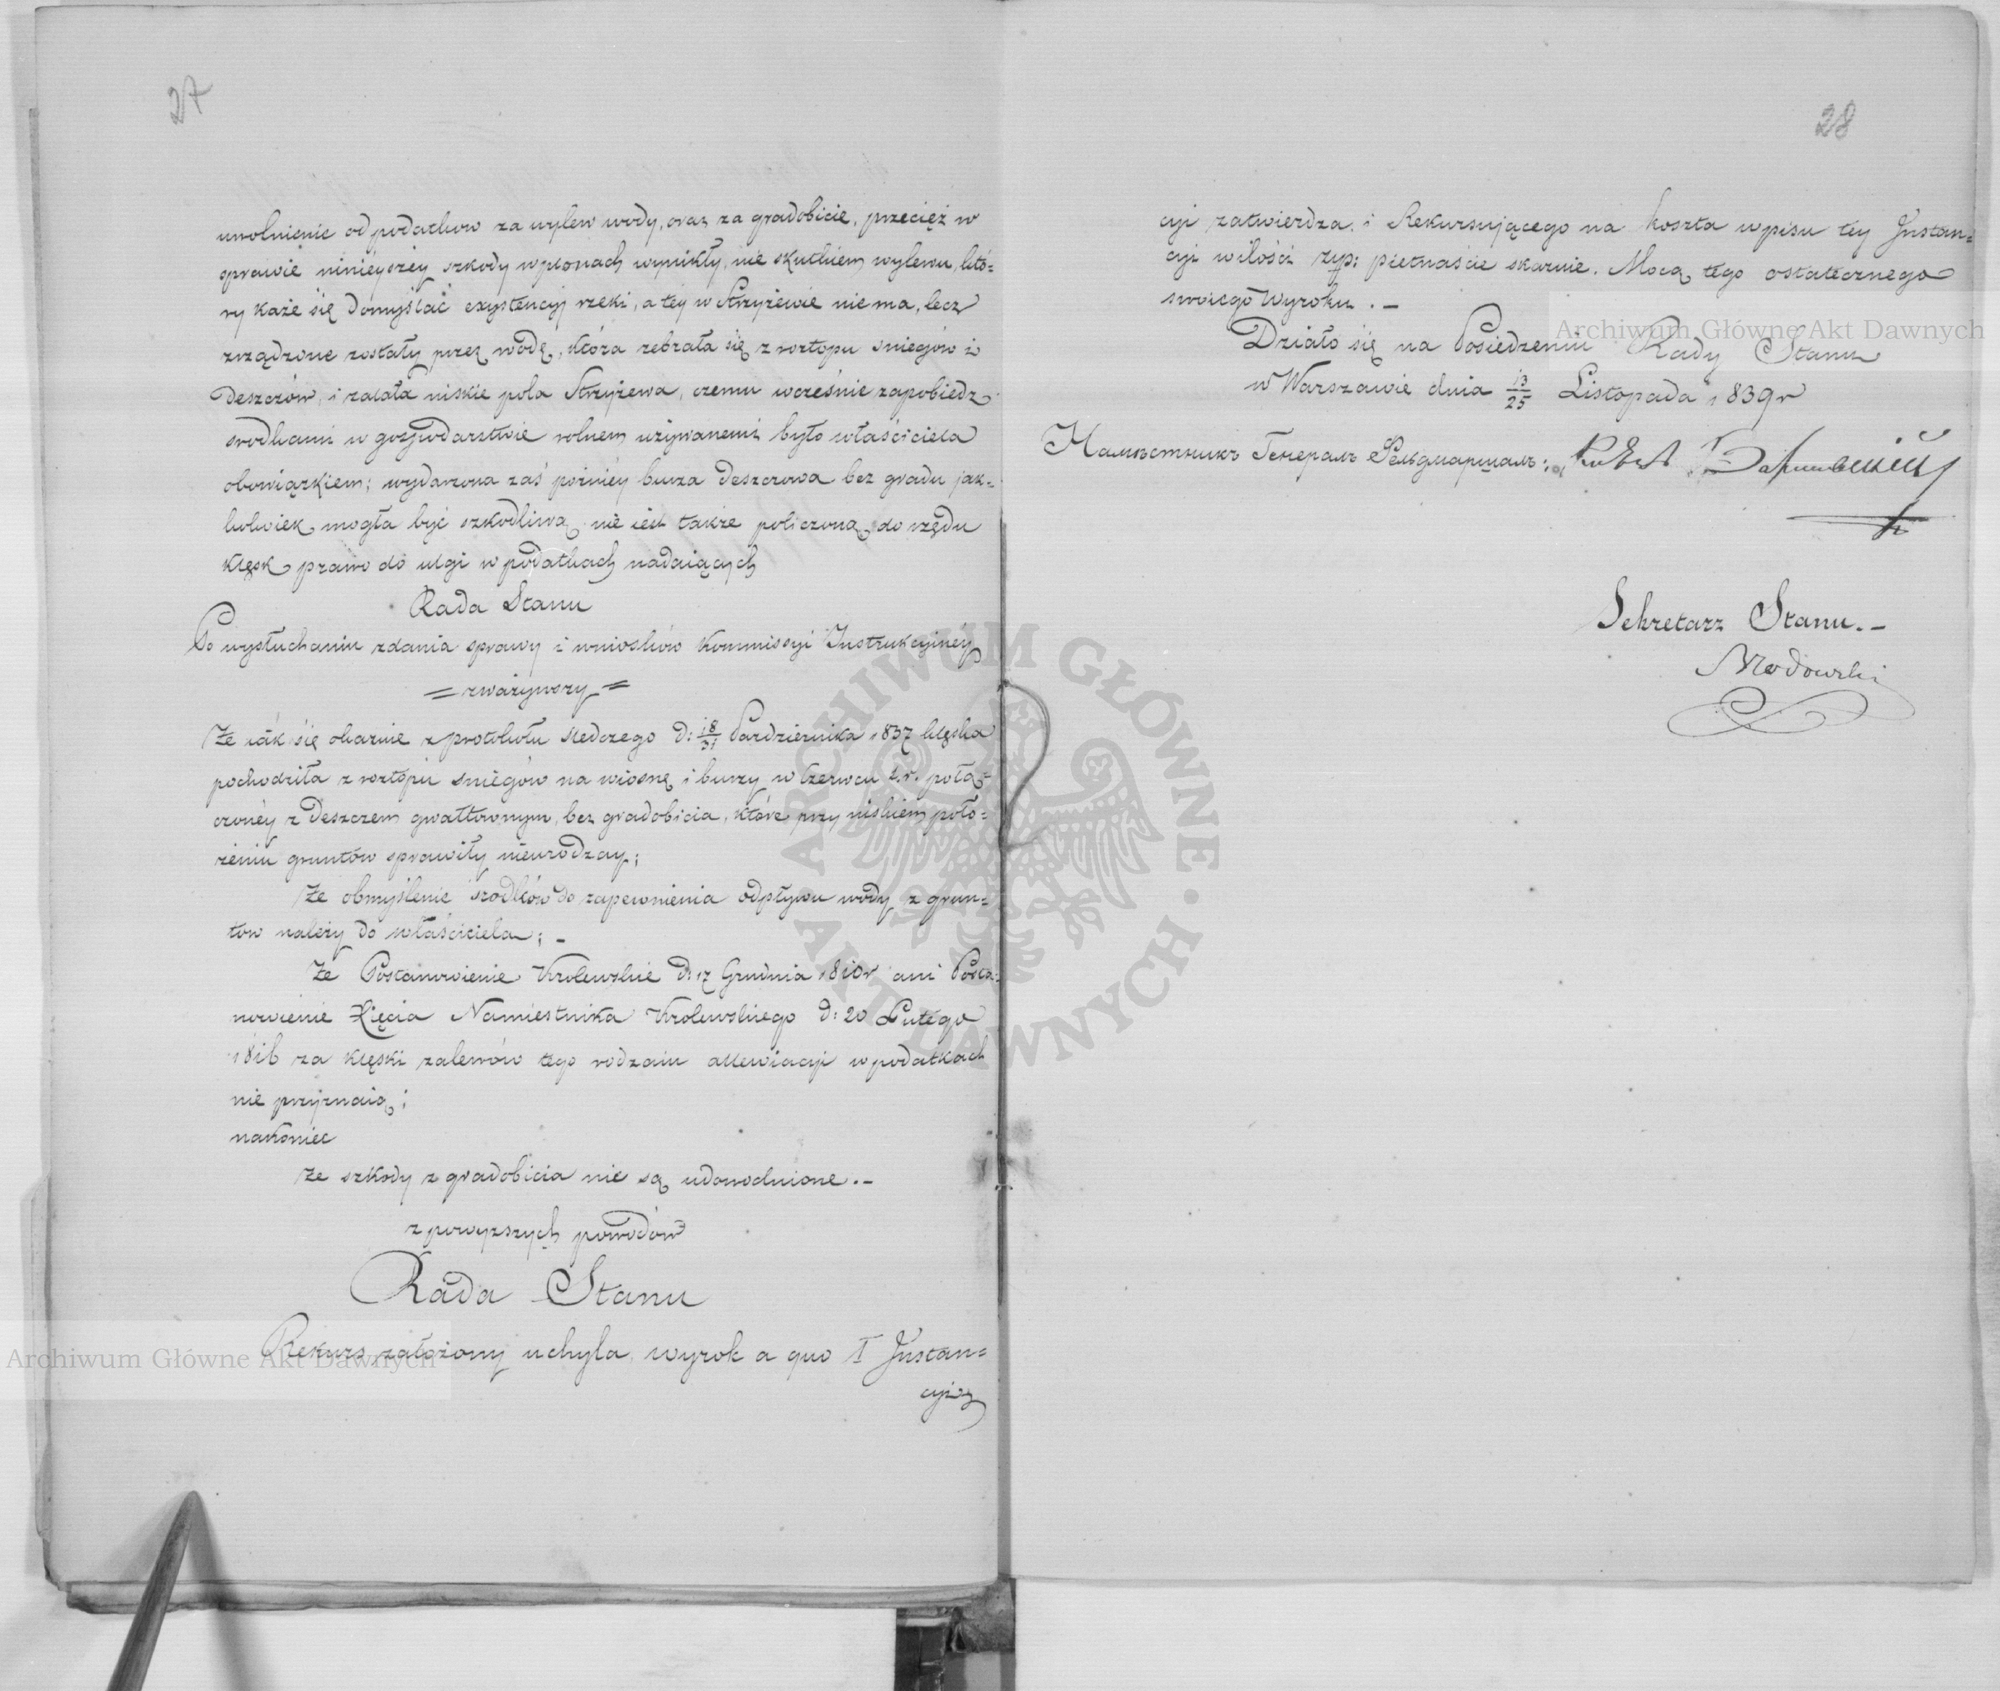 27
uwolnienie od podatkow za wylew wody, oraz za gradobicie, przecięż w
sprawie ninieyszéy szkody w plonach wynikły, nie skutkiem wylewu, któ-
ry każe się domyślać exystencyj rzeki, a téy w Strzyżewie nie ma, lecz
zrządzone zostały przez wodę, która zebrała się z roztopu sniegów i
deszczów, i zalała niskie pola Strzyżewa, czemu wcześnie zapobiedz
srodkami w gospodarstwie rolnem używanemi było właściciela
obowiązkiem; wydarzona zaś poźniéy burza deszczowa bez gradu jak-
kolwiek mogła być szkodliwą nie iest także policzoną do rzędu
klęsk prawo do ulgi w podatkach nadaiących
Rada Stanu
Po wysłuchaniu zdania sprawy i wniosków Kommissyi Instrukcyinéy
= zważywszy =
Że iák się okazuie z protokułu śledczego d: 18/31 Pazdziernika 1837 klęska
pochodziła z roztopu sniegów na wiosnę i burzy w Czerwcu t.r. połą-
czonéy z deszczem gwałtownym, bez gradobicia, które przy niskiem poło-
żeniu gruntów sprawiły nieurodzay;
Że obmyślenie srodków do zapewnienia odpływu wody z grun-
tow należy do właściciela; -
Że Postanowienie Krolewskie d: 17 Grudnia 1810r ani Posta-
nowienie Xięcia Namiestnika Krolewskiego d: 20 Lutego
1816 za klęski zalewów tego rodzaiu allewiacyi w podatkach
nie przyznaią;
nakoniec
że szkody z gradobicia nie są udowodnione. -
z powyższych powodów
Rada Stanu
Rekurs założony uchyla, wyrok a quo I Instan-
cyi
28
cyi zatwierdza, i Rekursuiącego na koszta wpisu téy Instan-
cyi w ilości złp: piętnaście skazuie. Mocą tego ostatecznego
swoiego Wyroku. -
Działo się na Posiedzeniu Rady Stanu
w Warszawie dnia 13/25 Listopada 1839r
Намѣстникъ Генералъ Фельдмаршалъ:
Sekretarz Stanu. -
Archiwum Główne Akt Dawnych
Archiwum Główne Akt Dawnych
ARCHIWUM GŁÓWNE · AKT DAWNYCH ·